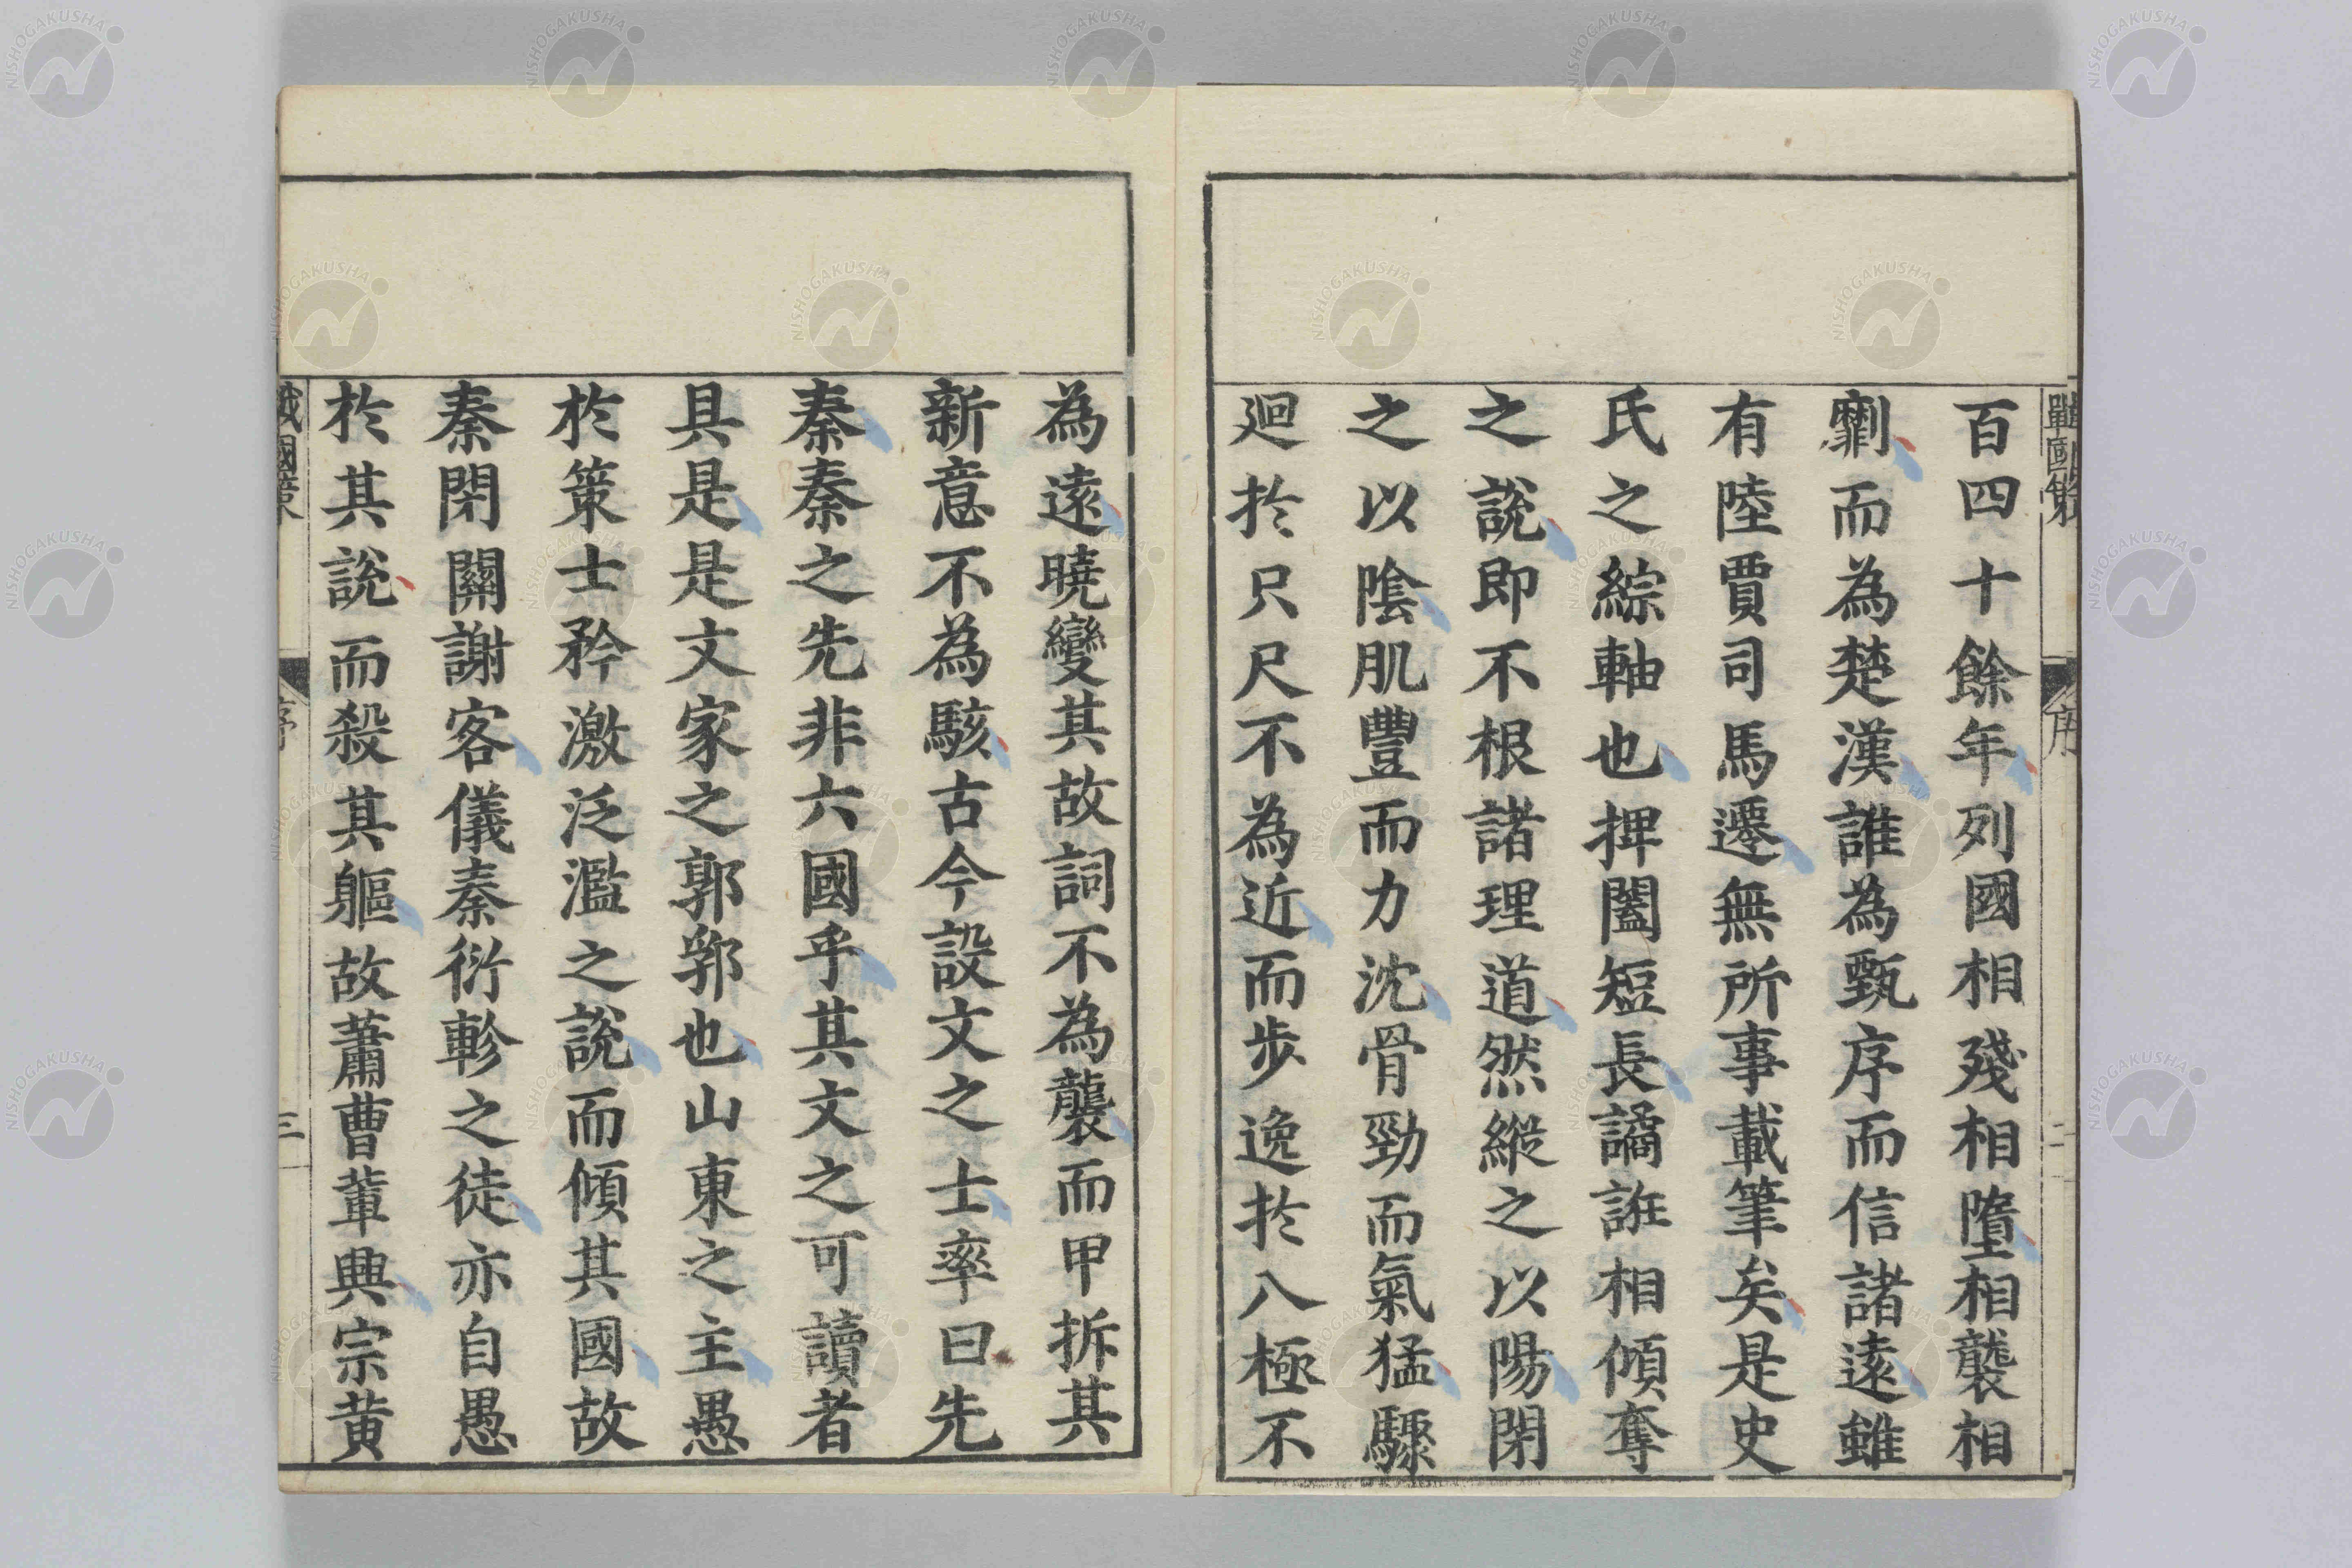 戰國策 序 二
百四十餘年列國相殘相墮相襲相
劘而為楚漢誰為甄序而信諸遠雖
有陸賈司馬遷無所事載筆矣是史
氏之綜軸也捭闔短長譎誑相傾奪
之說即不根諸理道然縱之以陽閉
之以陰肌豐而力沈骨勁而氣猛驟
迴於只尺不為近而步逸於八極不
為遠曉變其故詞不為襲而甲拆其
新意不為駭古今設文之士率曰先
秦秦之先非六國乎其文之可讀者
具是是文家之郭郛也山東之主愚
於策士矜激泛濫之說而傾其國故
秦閉關謝客儀秦衍軫之徒亦自愚
於其說而殺其軀故蕭曹輩興宗黃
戰國策 序 三
NISHOGAKUSHA